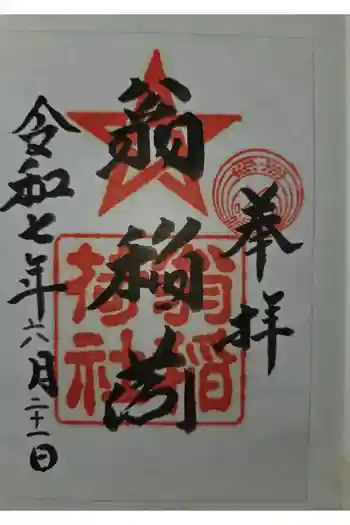 奉拝
翁稲荷
翁稲荷社
令和七年六月二十一日